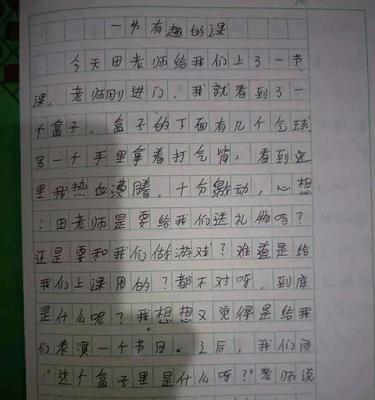 一节有趣的课
今天田老师给我们上了一节
课，老师刚进门，我就看到了一
个盒子，盒子的下面有几个气球
另一个手里拿着打气筒，看到这
里我热血沸腾，十分激动，心想
：田老师是要给我们送礼物吗？
还是要和我们做游戏？难道是给
我们上课用的？都不对呀，到底
是什么呢？我想想又觉得是给我
们表演一个节目。之后，我们问
：“这个盒子里是什么呀？”老师说